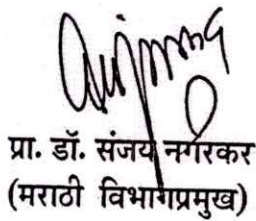 प्रा. डॉ. संजय नगरकर
(मराठी विभागप्रमुख)